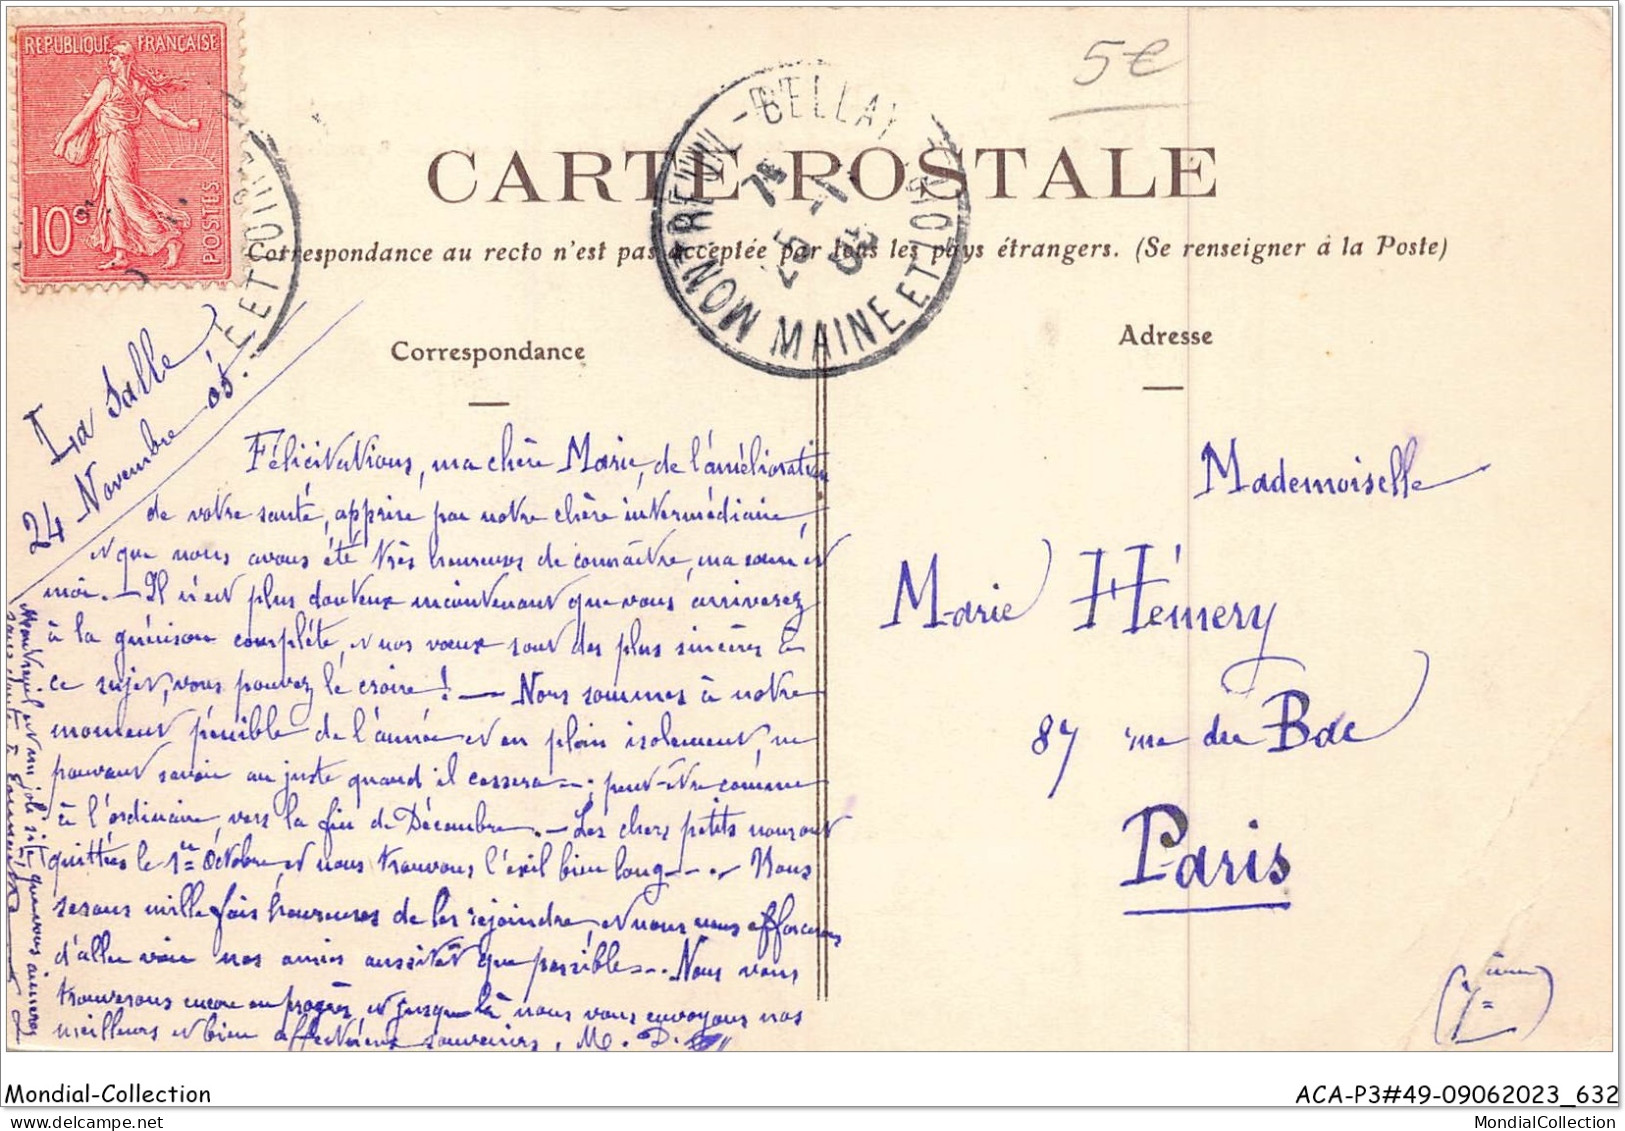 5€
REPUBLIQUE FRANÇAISE
10c POSTES
CARTE POSTALE
MONTREUIL-BELLAY
MAINE ET LOIRE
Correspondance au recto n'est pas acceptée par tous les pays étrangers. (Se renseigner à la Poste)
Correspondance
Adresse
La Salle
24 Novembre 05.
Félicitations, ma chère Marie, de l'amélioration
de votre santé, apprise par notre chère intermédiaire,
et que nous avons été très heureuses de connaître, ma sœur et
moi. — Il n'est plus douteux maintenant que vous arriverez
à la guérison complète, et nos vœux sont des plus sincères à
ce sujet, vous pouvez le croire! — Nous sommes à notre
moment pénible de l'année et en plein isolement, ne
pouvant savoir au juste quand il cessera —; peut-être comme
à l'ordinaire, vers la fin de Décembre. — Les chers petits nous ont
quittées le 1er Octobre, et nous trouvons l'exil bien long — . Nous
serons mille fois heureuses de les rejoindre, et nous nous efforcerons
d'aller voir nos amies aussitôt que possible —. Nous vous
trouverons encore en progrès, et jusque là nous vous envoyons nos
meilleurs et bien affectueux souvenirs, M. D.
Montreuil est un joli site que vous aimerez
sans doute à
Mademoiselle
Marie Hémery
87 rue du Bac
Paris
(7=ème)
Mondial-Collection
ACA-P3#49-09062023_632
MondialCollection